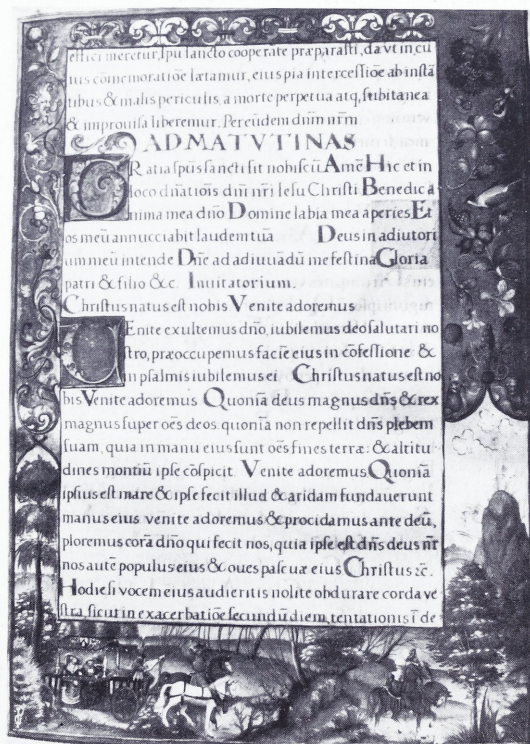 effici meretur, spū sancto cooperāte præparasti, da vt in, cu
ius cōmemoratiōe lætamur, eius pia intercessiōe ab instā
tibus & malis periculis, a morte perpetua atq, subitanea
& improuisa liberemur. Per eūdem dnm nrm
AD MATVTINAS
GRatia spūs sancti sit nobiscū Amē Hic et in
loco dnatiōis dni nri Iesu Christi Benedic ā
nima mea dno Domine labia mea aperies Et
os meū annucciabit laudem tuā Deus in adiutori
um meū intende Dne ad adiuuādū me festina Gloria
patri & filio &c. Inuitatorium.
Christus natus est nobis Venite adoremus
VEnite exultemus dno, iubilemus deo salutari no
stro, præoccupemus faciē eius in cōfessione &
in psalmis iubilemus ei Christus natus est no
bis Venite adoremus Quoniā deus magnus dns & rex
magnus super oēs deos. quoniā non repellit dns plebem
suam, quia in manu eius sunt oēs fines terræ: & altitu
dines montiū ipse cōspicit Venite adoremus Quoniā
ipsius est mare & ipse fecit illud & aridam fundauerunt
manus eius venite adoremus & procidamus ante deū,
ploremus corā dno qui fecit nos, quia ipse est dns deus nr
nos autē populus eius & oues pascuæ eius Christus &c.
Hodie si vocem eius audieritis nolite obdurare corda ve
stra, sicut in exacerbatiōe secundū diem, tentationis ī de